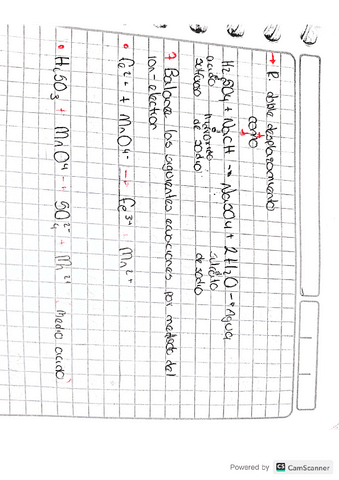 → R. doble desplazamiento
como
H2SO4 + NaOH → Na2SO4 + 2H2O → Agua
ácido hidróxido sulfato
sulfúrico de sodio de sodio
7 Balance las siguientes ecuaciones por método del
ion-electron
• Fe2+ + MnO4- → Fe3+ + Mn2+
• H2SO3 + MnO4- → SO4 2- + Mn2+ Medio acido.
Powered by CS CamScanner